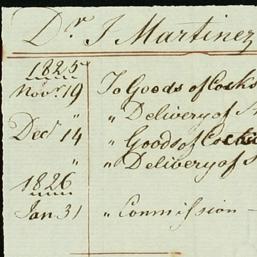 Dr. J Martinez
1825
Novr. 19 To Goods of Cocks
" " Delivery of
Decr 14 " Goods of
" " Delivery of
1826
Jan 31 " Commission -